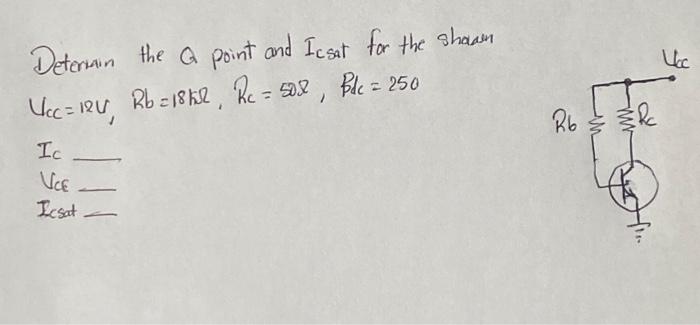 Determin the Q point and Icsat for the shown
Vcc = 12V, Rb = 18kΩ, Rc = 50Ω, βdc = 250
Ic ___
VCE ___
Icsat ___
Vcc
Rb
Rc